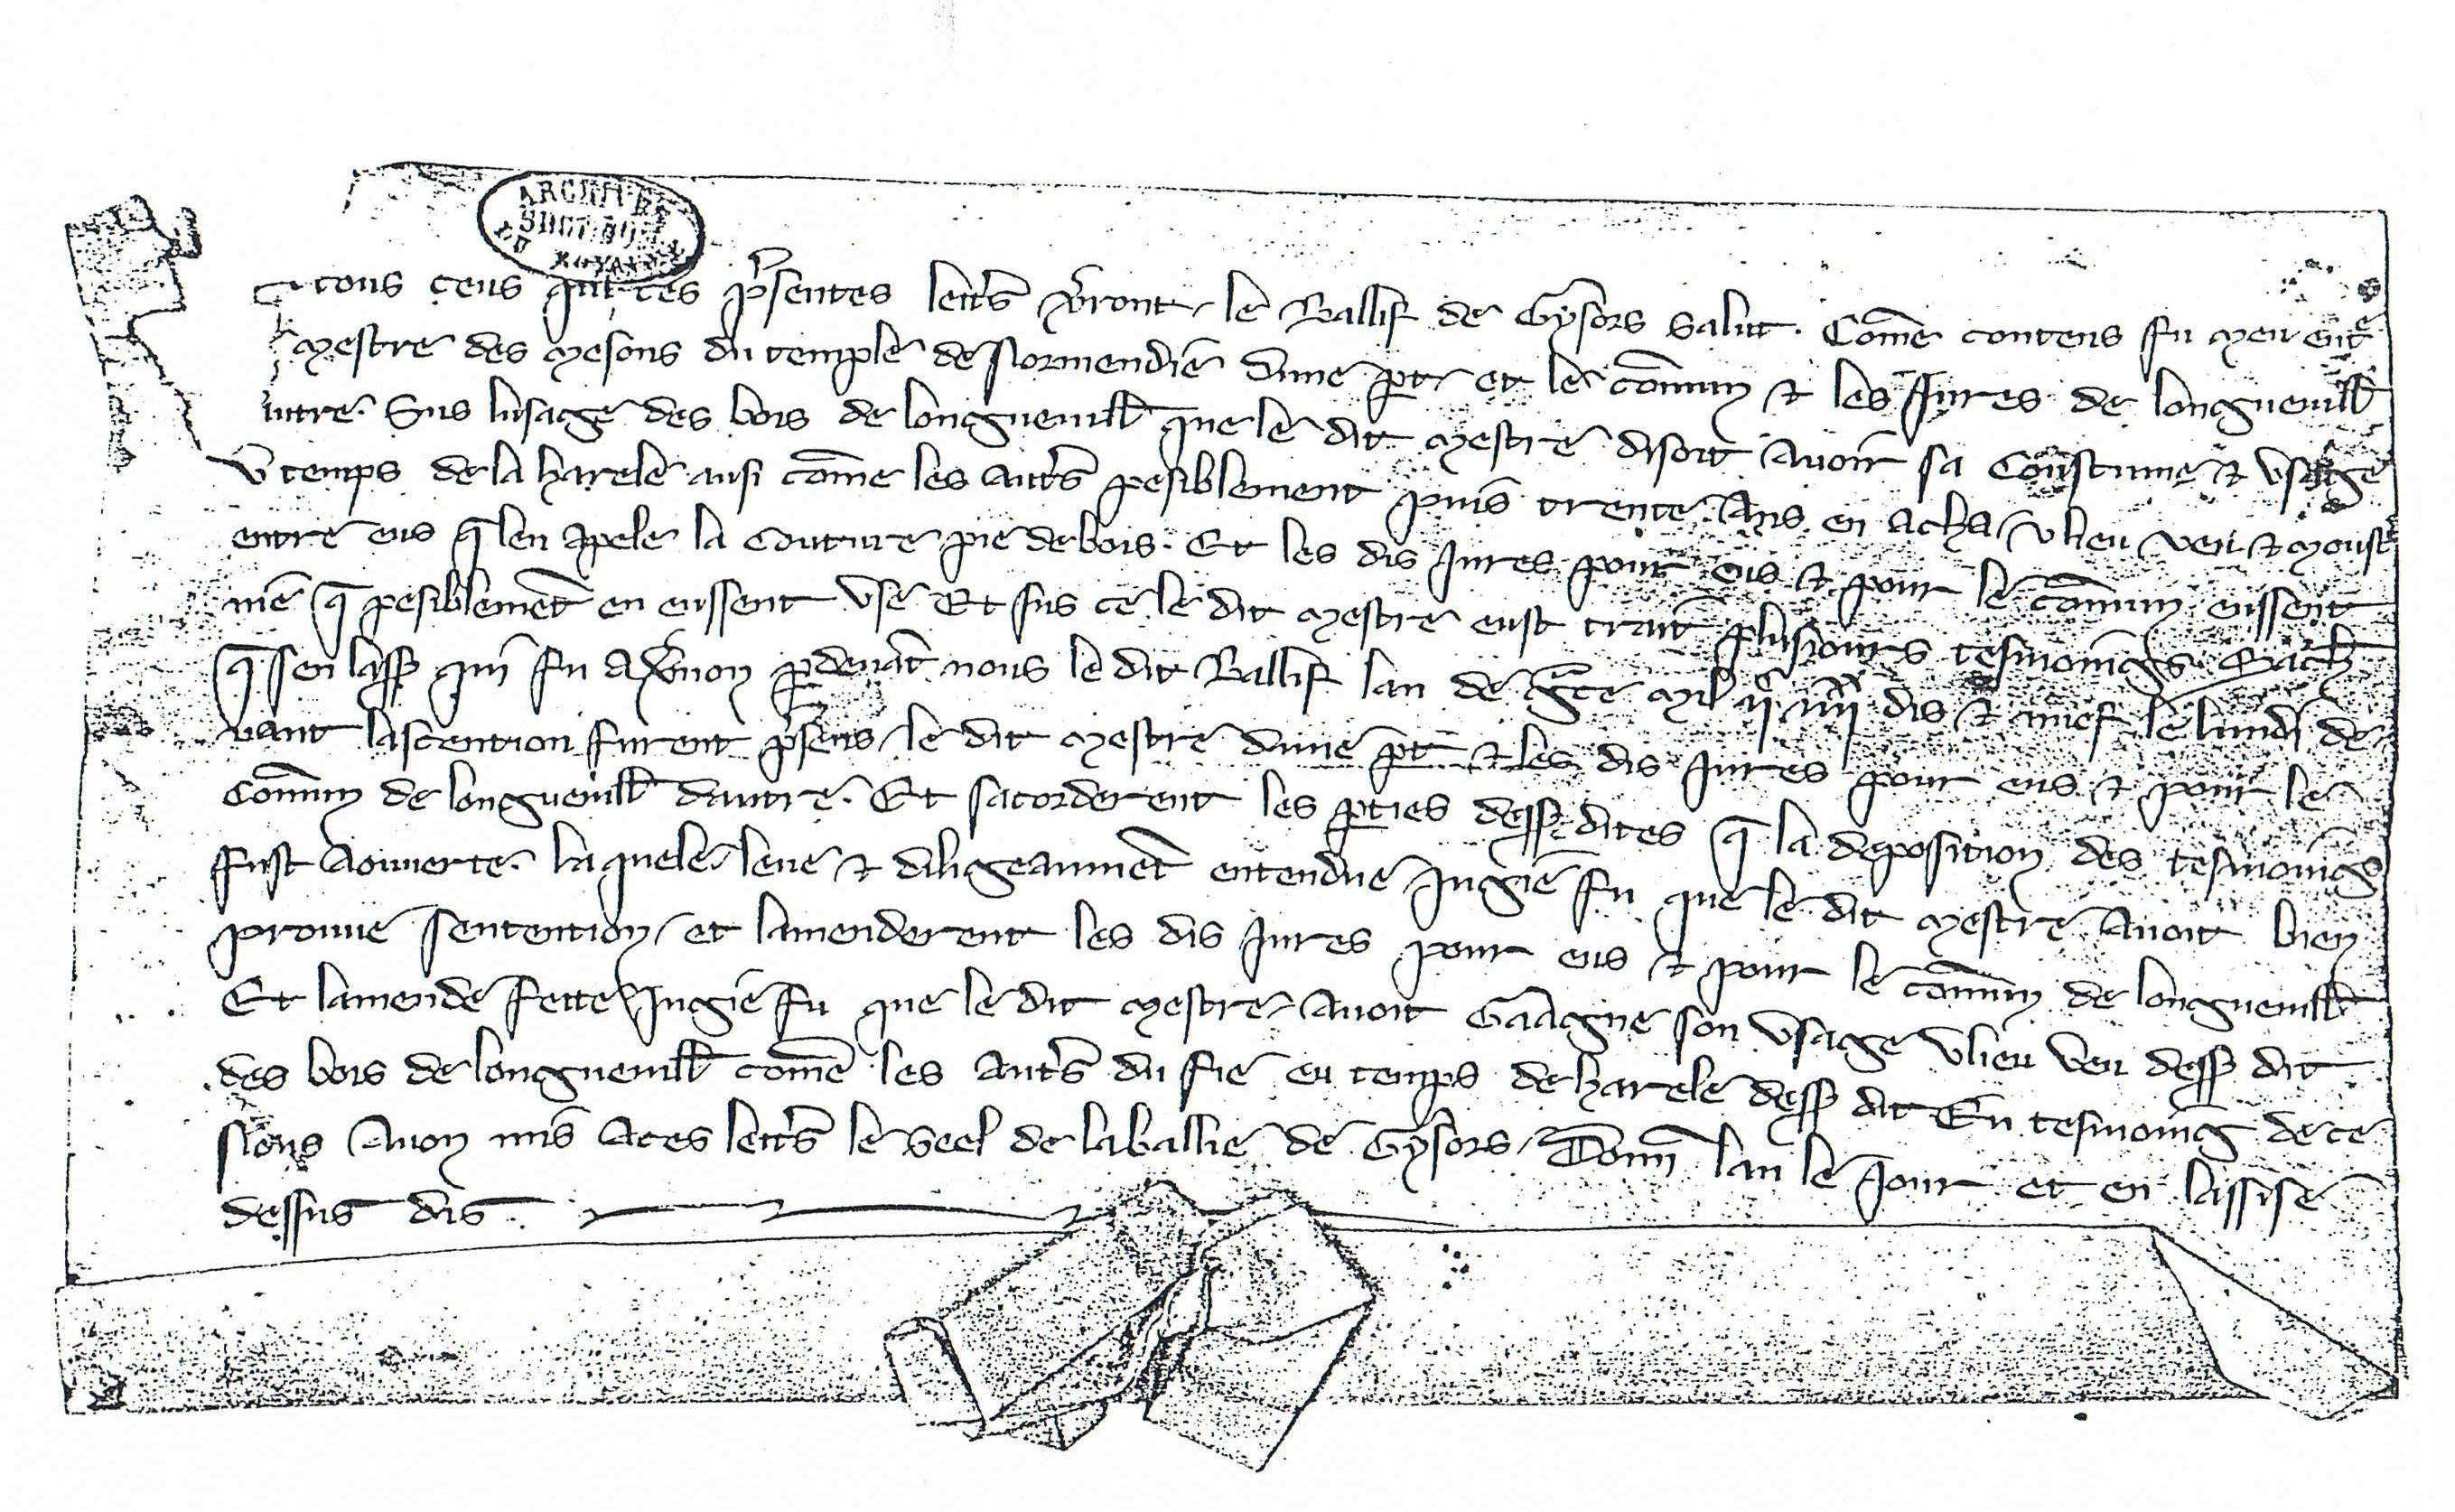 ARCHIVES
DU ROYAUME
tous ceus qui ces p̃sentes lett̃s ṽront / le Ballif de Gysors salut . Com̃e contens fu meu ent̃e
mestre des mesons du temple de Normendie dune p̱t / et le com̃un ⁊ les Jures de longueuill̃
utre . Sus lusage des bois de longueuill̃ que le dit mestre disoit auoir sa Coustume ⁊ vsage
v temps de la harele ausi com̃e les aut̃s pesiblement puis trente ans en acha / v lieu veu ⁊ moust̃
entre eus q̃ len apele la Couture pie de bois . Et les dis Jures pour eus ⁊ pour le com̃un eussent
nie q̃ pesiblemẽt en eussent vse Et sus ce le dit mestre eust trait plusiours tesmoings
q̃ sen lass̃ qui fu a ṽnon p̱deuãt nous le dit Ballif lan de g̃ce mil ii^c iiii^xx dis ⁊ nief le lundi de
vant lascention furent p̃sens / le dit mestre dune p̱t ⁊ les dis Jures pour eus ⁊ pour le
Com̃un de longueuill̃ dautre . Et sacorderent les p̱ties dess̃ dites q̃ la deposition des tesmoings
fust aouuerte . la quele leue ⁊ diligeaumẽt entendue Jugie fu que le dit mestre auoit bien
prouue sentention / et lamenderent les dis Jures pour eus ⁊ pour le com̃un de longueuill̃
Et lamende fette Jugie fu que le dit mestre auoit Gaagne son vsage v lieu veu dess̃ dit
des bois de longueuill̃ com̃e les aut̃s du fie eu temps de harele dess̃ dit En tesmoing de ce
Nous auon mis a ces lett̃s le seel de la ballie de Gysors / Donn̄ lan le Jour et en lassise
dessus dis .